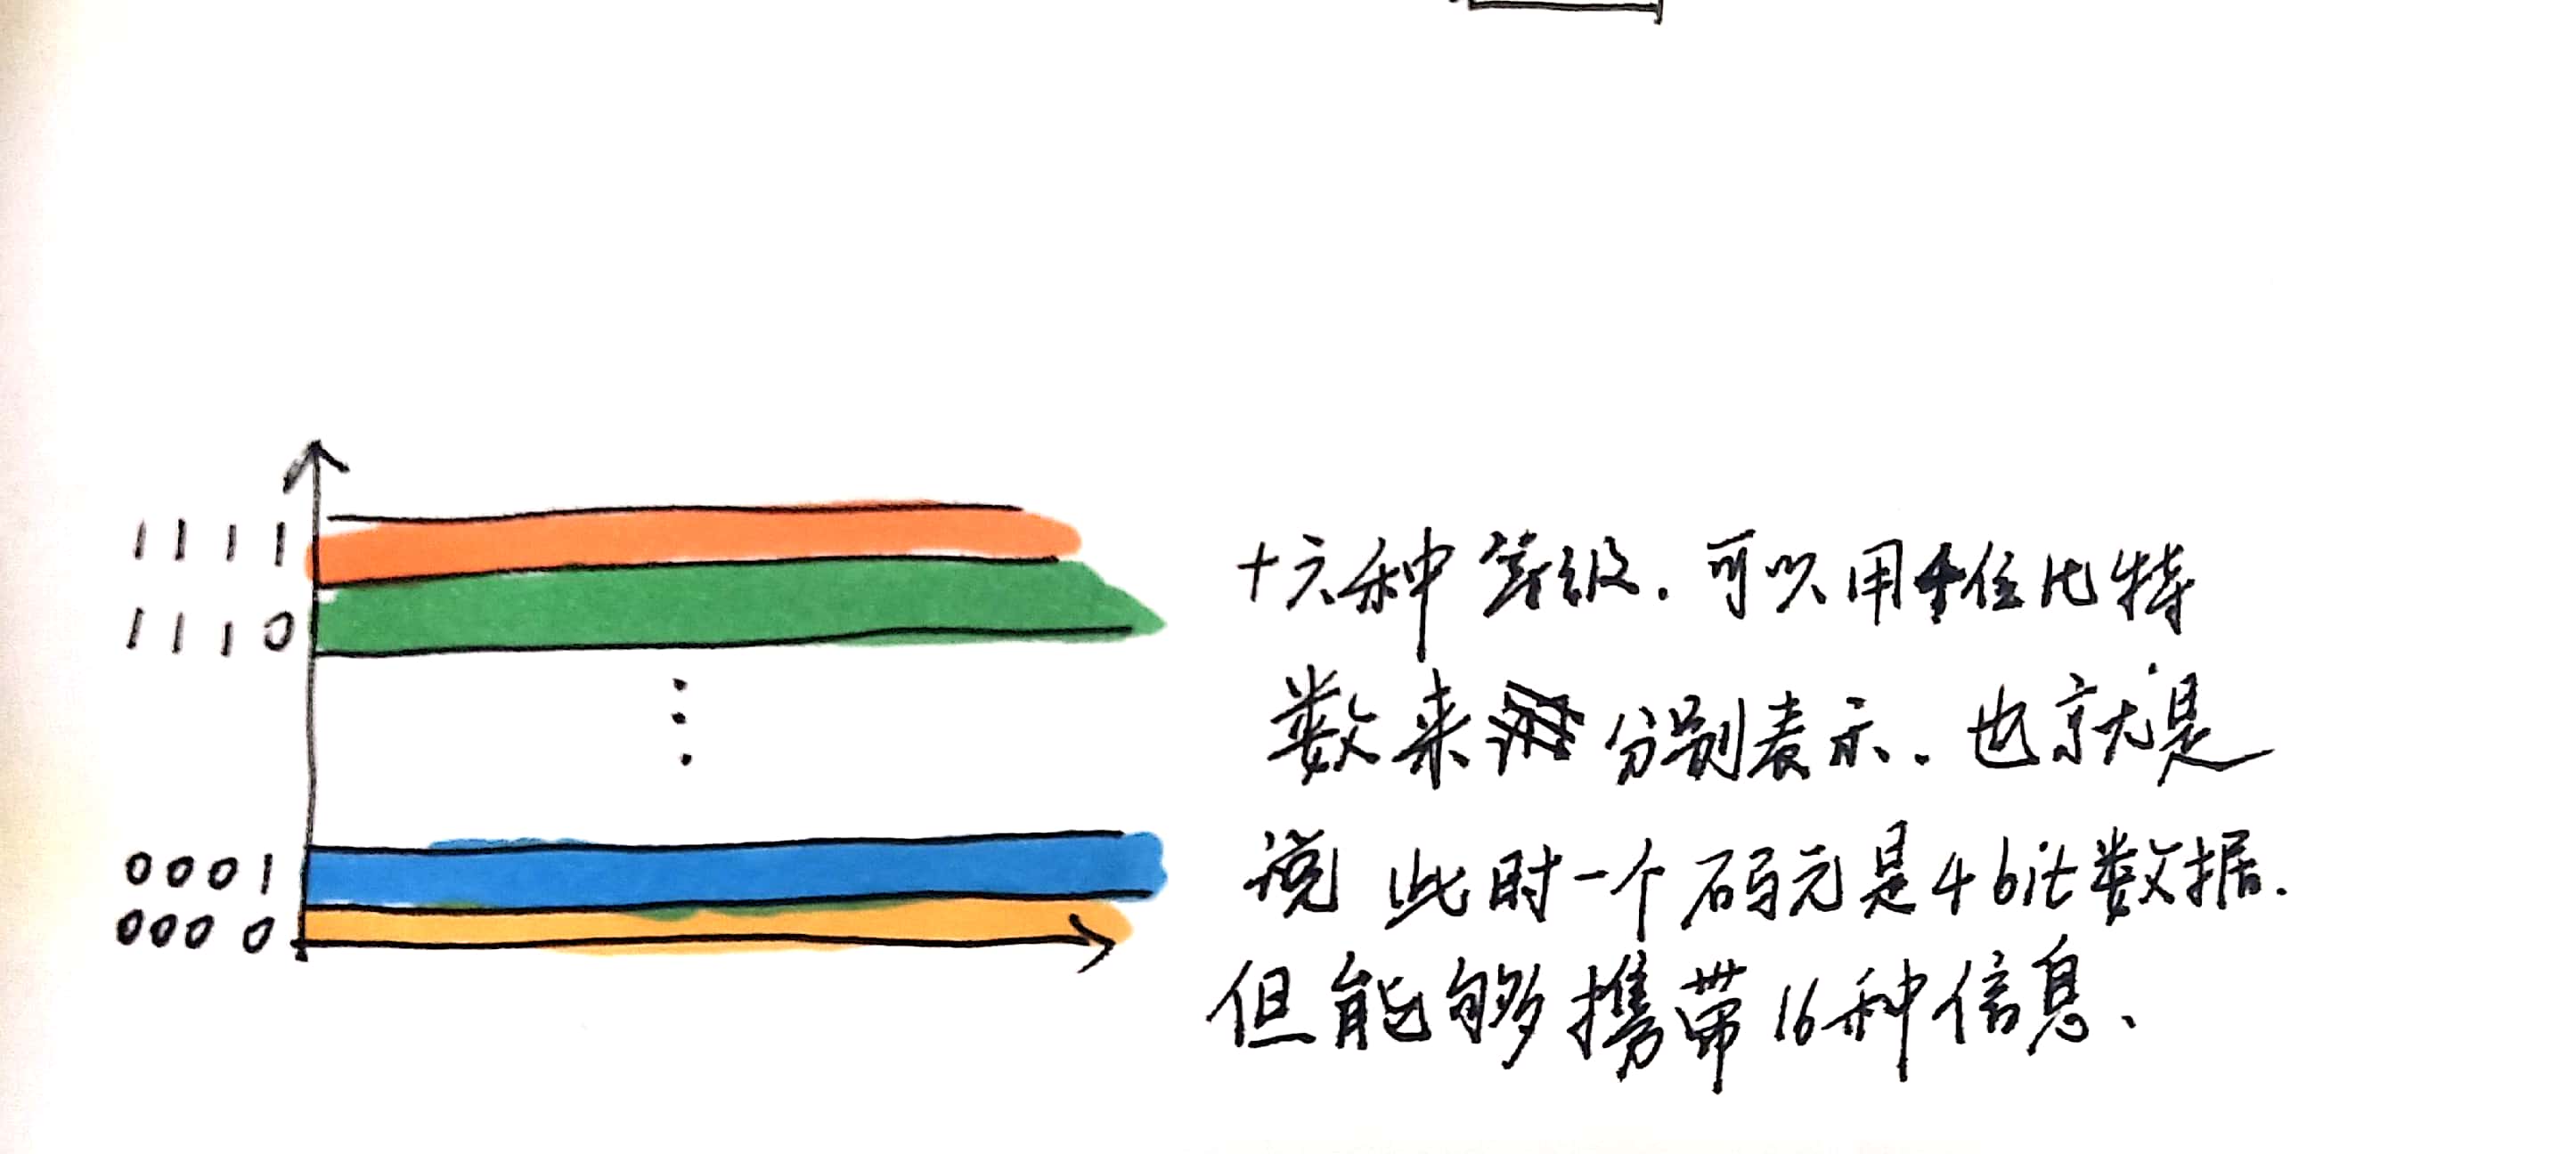 1111
1110
0001
0000
十六种等级.可以用4位比特
数来分别表示.也就是
说此时一个码元是4bit数据.
但能够携带16种信息、